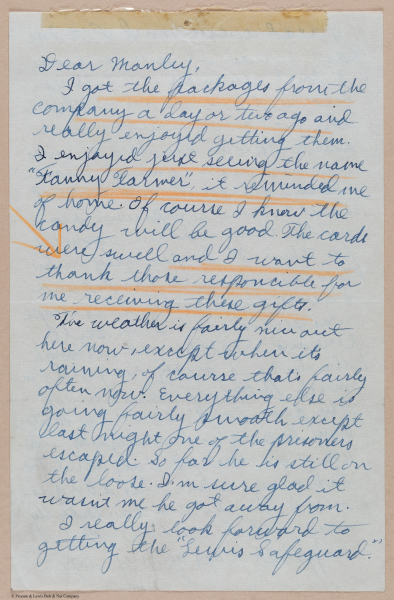 Dear Manley,
I got the packages from the
company a day or two ago and
really enjoyed getting them.
I enjoyed just seeing the name
"Fanny Farmer", it reminded me
of home. Of course I know the
candy will be good. The cards
were swell and I want to
thank those responsible for
me receiving these gifts.
The weather is fairly nice out
here now, except when its
raining, of course that's fairly
often now. Everything else is
going fairly smooth except
last night one of the prisoners
escaped. So far he is still on
the loose. I'm sure glad it
wasn't me he got away from.
I really look forward to
getting the "Lewis Safeguard."